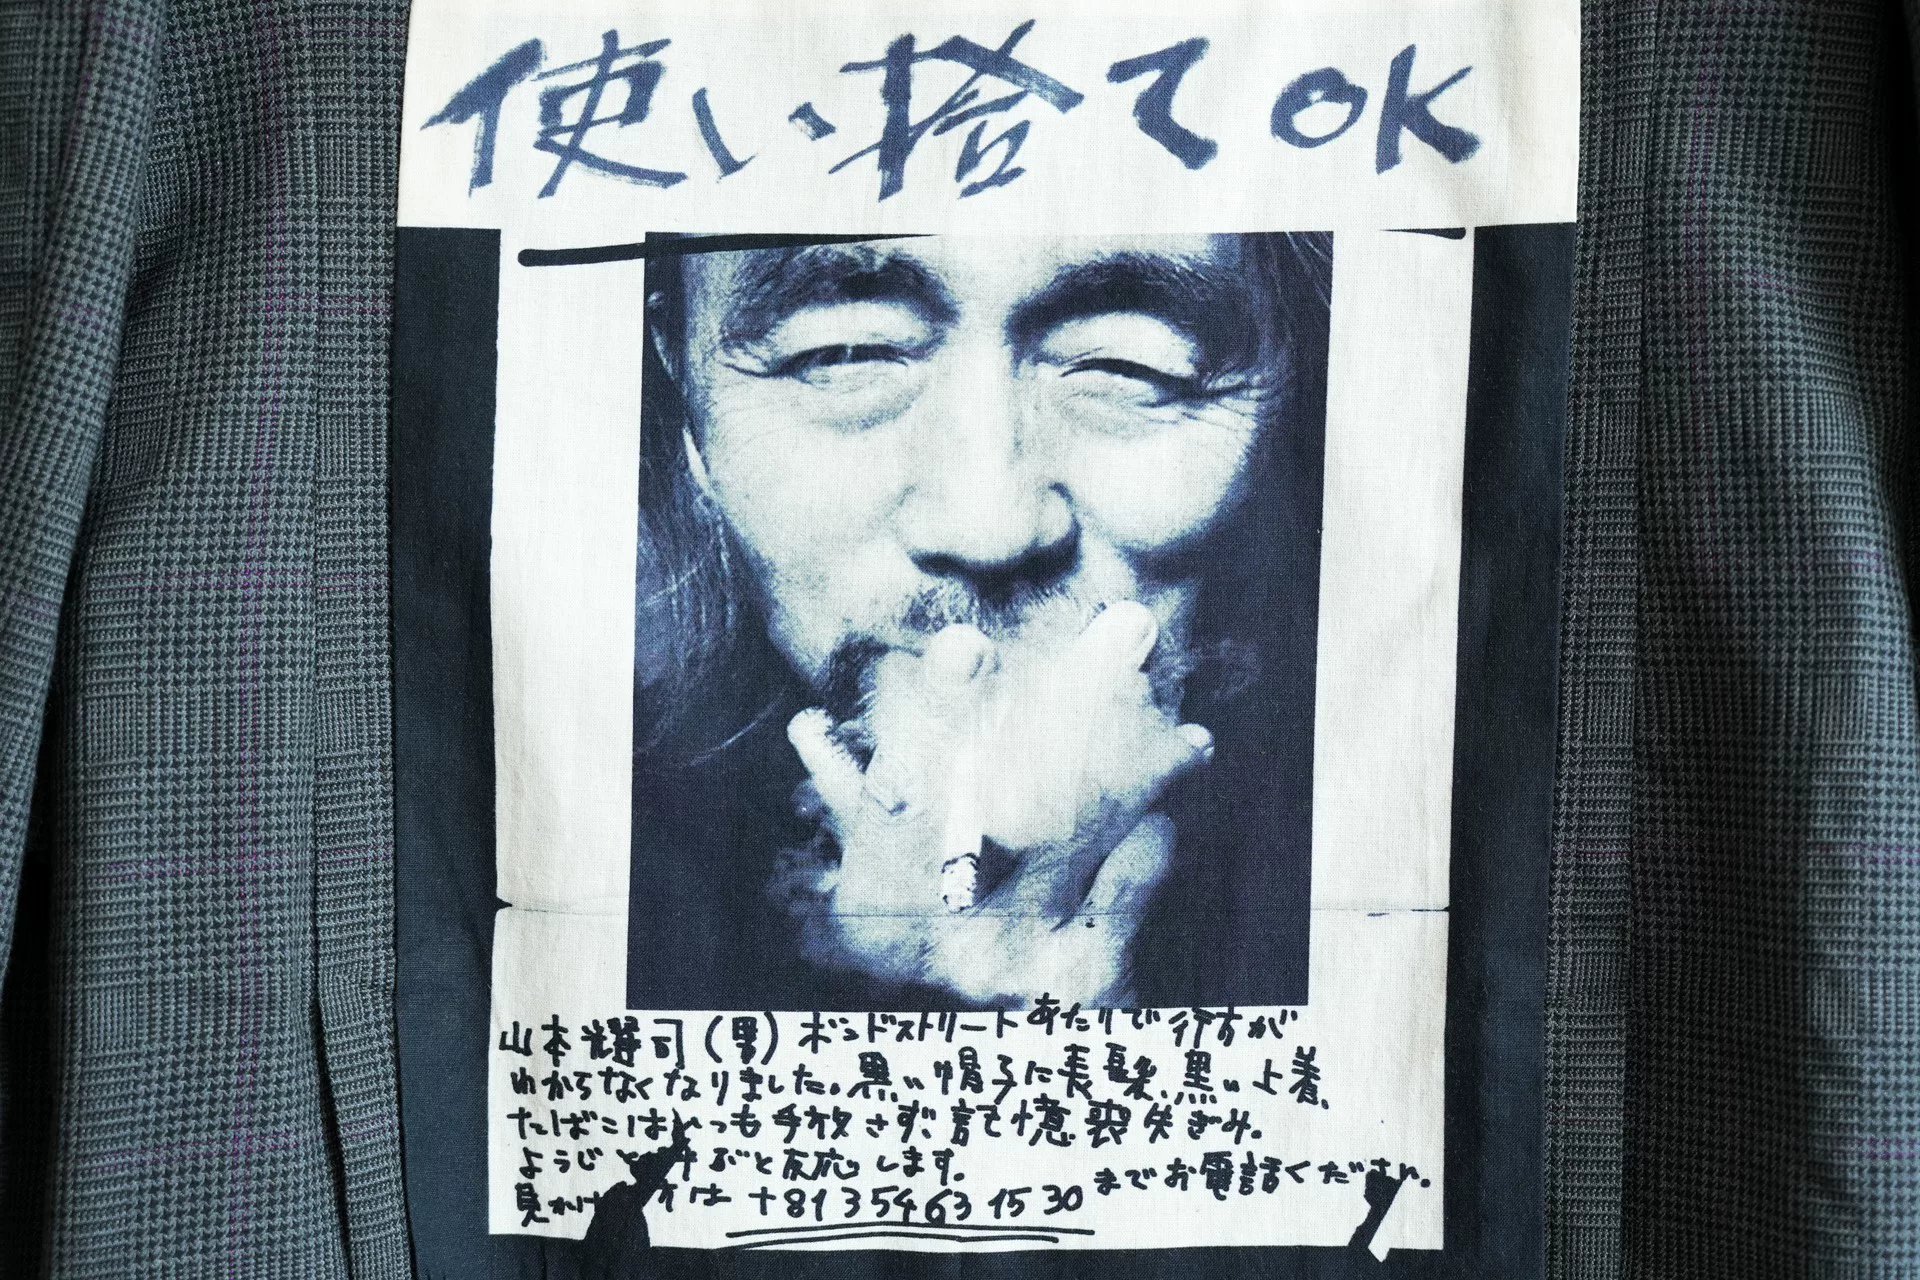 使い捨てOK
山本耀司(男)ボンドストリートあたりで行方が
わからなくなりました。黒い帽子に長髪、黒い上着、
たばこはいつも手放さず、記憶喪失ぎみ。
ようじと ぶと反応します。
見かけ は +81 3 5463 15 30 までお電話ください。